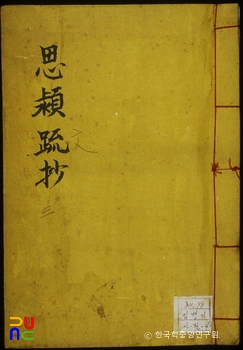 思潁疏抄
三
文
ⓒ 한국학중앙연구원